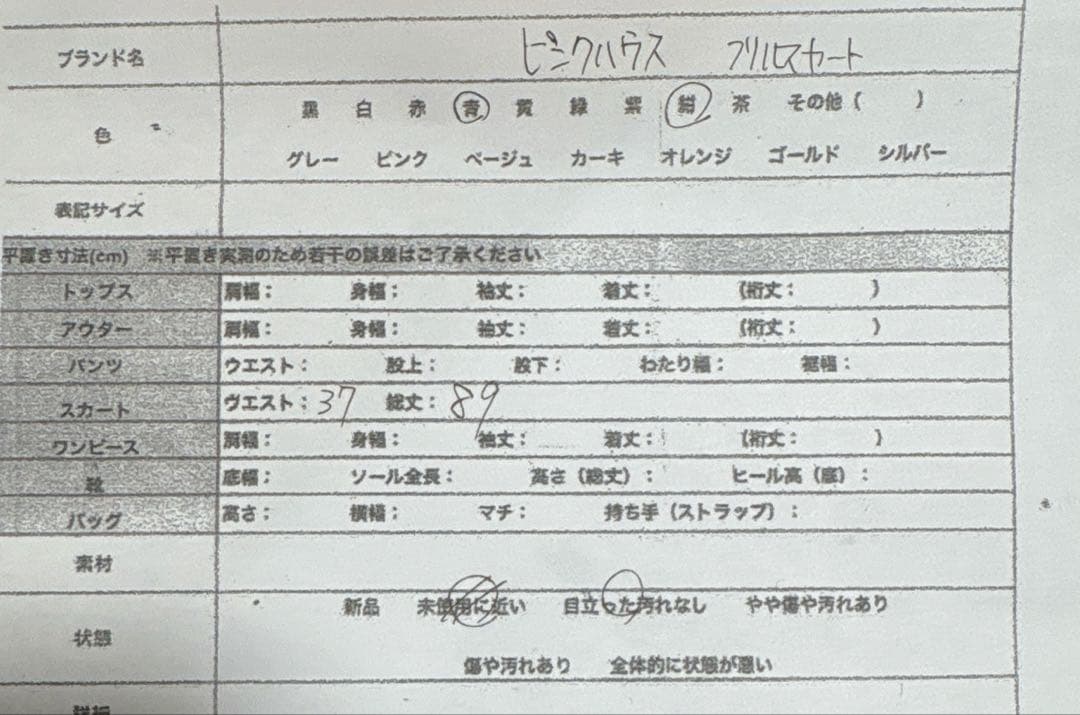 ブランド名 ピンクハウス フリルスカート
黒 白 赤 青 黄 緑 紫 紺 茶 その他（ ）
色
グレー ピンク ベージュ カーキ オレンジ ゴールド シルバー
表記サイズ
平置き寸法(cm) ※平置き実測のため若干の誤差はご了承ください
トップス 肩幅： 身幅： 袖丈： 着丈： （裄丈： ）
アウター 肩幅： 身幅： 袖丈： 着丈： （裄丈： ）
パンツ ウエスト： 股上： 股下： わたり幅： 裾幅：
スカート ウエスト：37 総丈：89
ワンピース 肩幅： 身幅： 袖丈： 着丈： （裄丈： ）
靴 底幅： ソール全長： 高さ（総丈）： ヒール高（底）：
バッグ 高さ： 横幅： マチ： 持ち手（ストラップ）：
素材
新品 未使用に近い 目立った汚れなし やや傷や汚れあり
状態
傷や汚れあり 全体的に状態が悪い